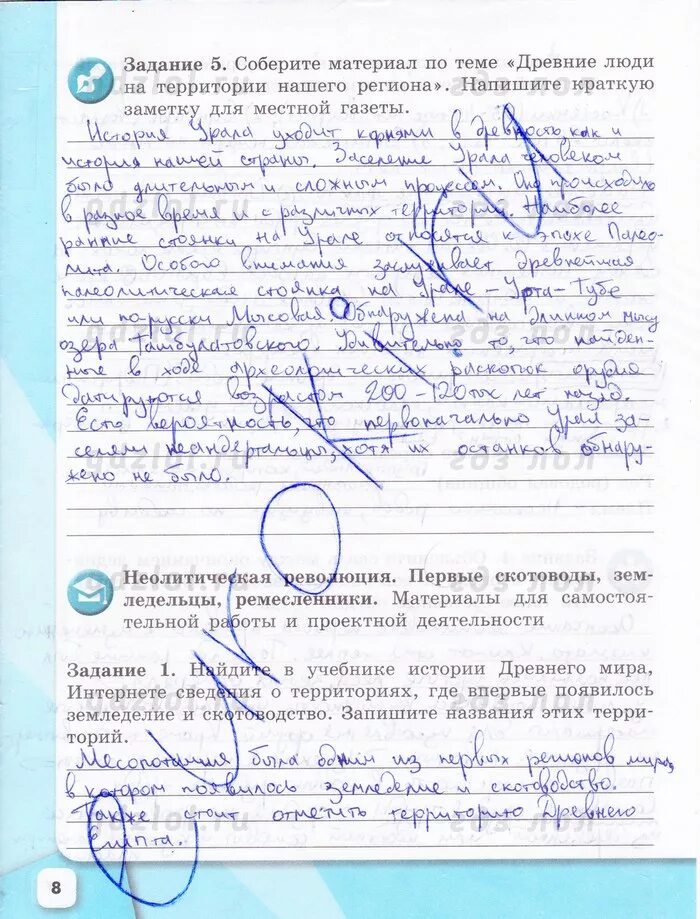 Задание 5. Соберите материал по теме «Древние люди
на территории нашего региона». Напишите краткую
заметку для местной газеты.
История Урала уходит корнями в древность, как и
история нашей страны. Заселение Урала человеком
было длительным и сложным процессом. Оно происходило
в разное время и с различных территорий. Наиболее
ранние стоянки на Урале относятся к эпохе Палео-
лита. Особого внимания заслуживает древнейшая
палеолитическая стоянка на Урале – Урта-Тубе
или по-русски Мысовая. Обнаружена на длинном мысу
озера Ташбулатовского. Удивительно то, что найден-
ные в ходе археологических раскопок орудия
датируются возрастом 200 – 120 тыс лет назад.
Есть вероятность, что первоначально Урал за-
селяли неандертальцы, хотя их останков обнару-
жено не было.
Неолитическая революция. Первые скотоводы, зем-
ледельцы, ремесленники. Материалы для самостоя-
тельной работы и проектной деятельности
Задание 1. Найдите в учебнике истории Древнего мира,
Интернете сведения о территориях, где впервые появилось
земледелие и скотоводство. Запишите названия этих терри-
торий.
Месопотамия была одним из первых регионов мира,
в котором появилось земледелие и скотоводство.
Также стоит отметить территорию Древнего
Египта.
8
gdzlol.ru